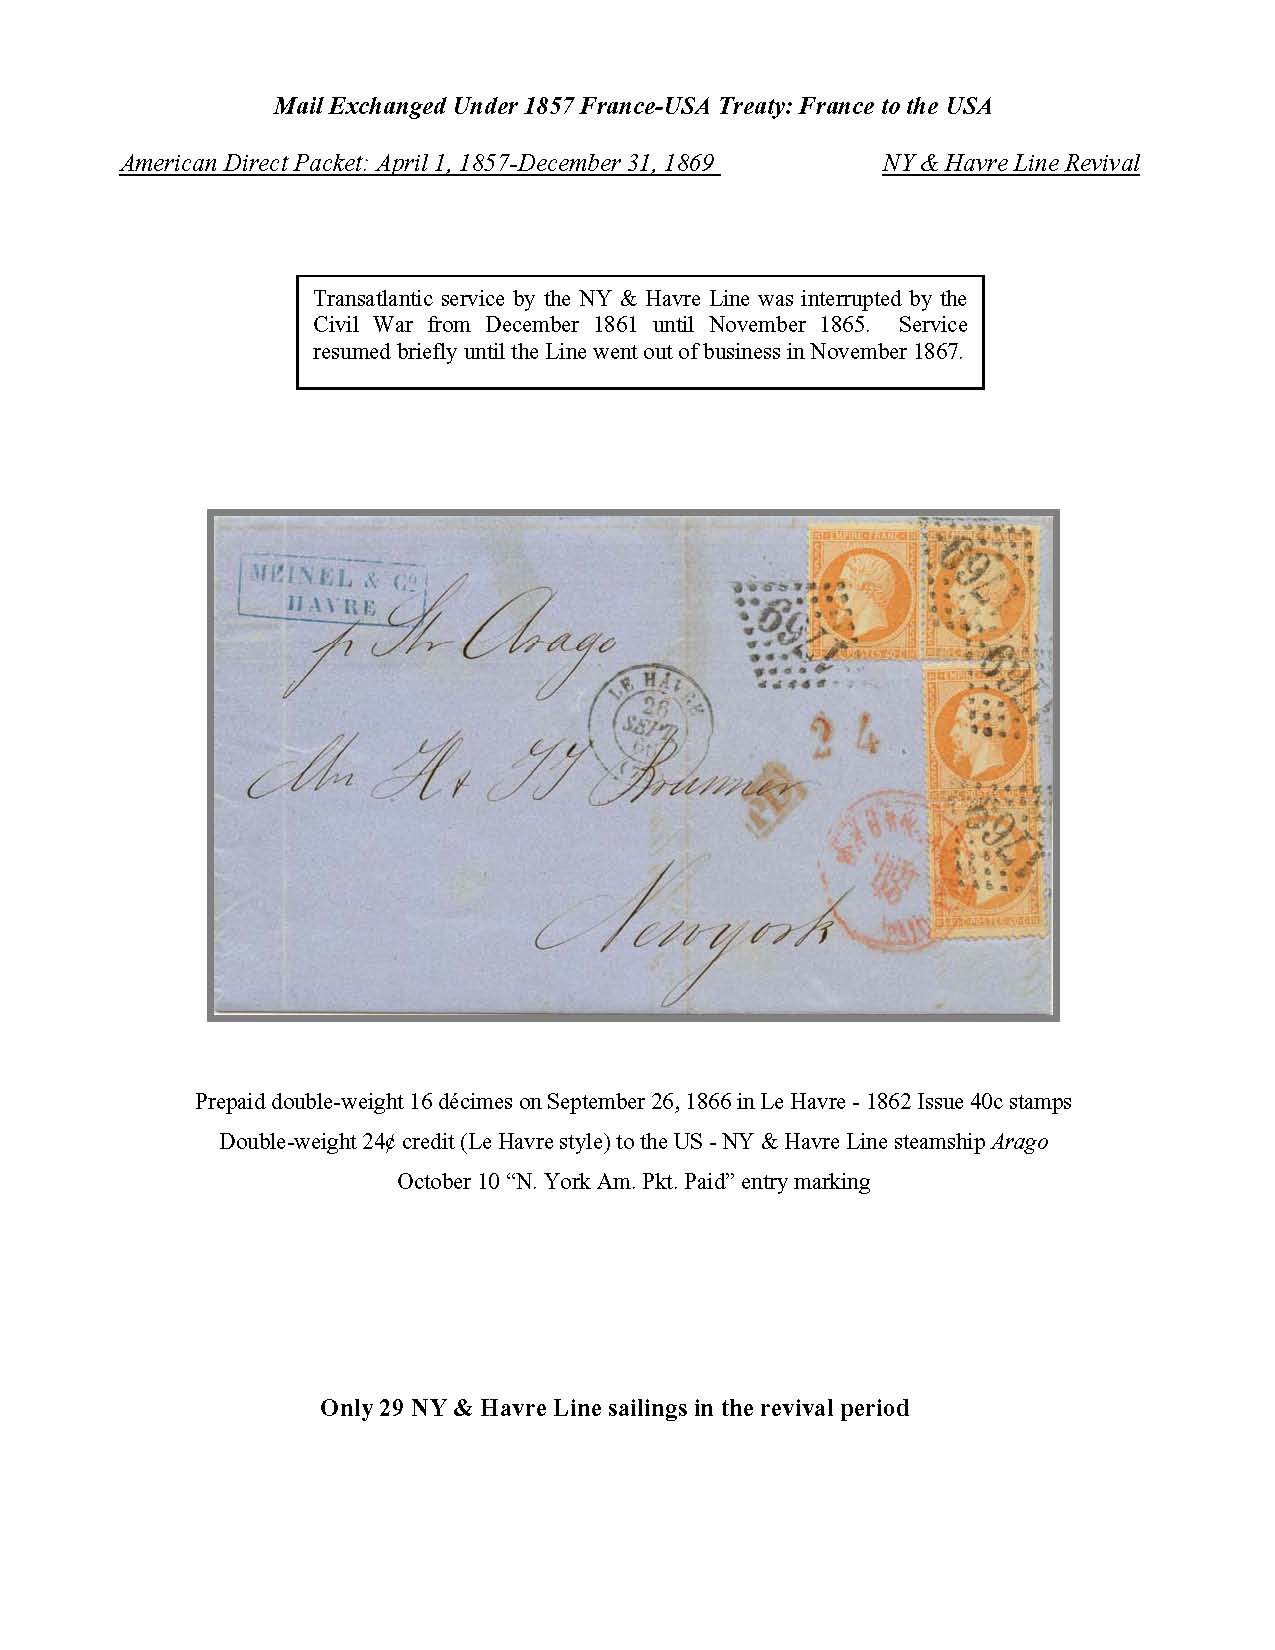 Mail Exchanged Under 1857 France-USA Treaty: France to the USA
American Direct Packet: April 1, 1857-December 31, 1869 NY & Havre Line Revival
Transatlantic service by the NY & Havre Line was interrupted by the
Civil War from December 1861 until November 1865. Service
resumed briefly until the Line went out of business in November 1867.
MEINEL & Co.
HAVRE
EMPIRE FRANC
1769
1769
p Str Arago
1769
LE HAVRE
26
SEPT
66
2 4
Mr H & JJ Brunner
PD
1769
Newyork
Prepaid double-weight 16 décimes on September 26, 1866 in Le Havre - 1862 Issue 40c stamps
Double-weight 24¢ credit (Le Havre style) to the US - NY & Havre Line steamship Arago
October 10 “N. York Am. Pkt. Paid” entry marking
Only 29 NY & Havre Line sailings in the revival period